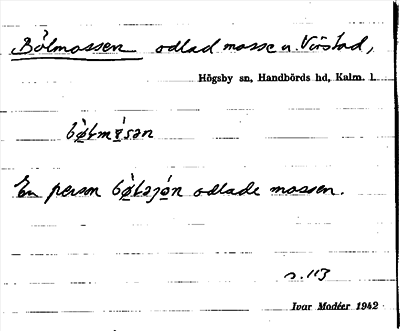 Bölmossen odlad mosse n. Virstad,
Högsby sn, Handbörds hd, Kalm. l.
En person odlade mossen.
s. 113
Ivar Modéer 1942